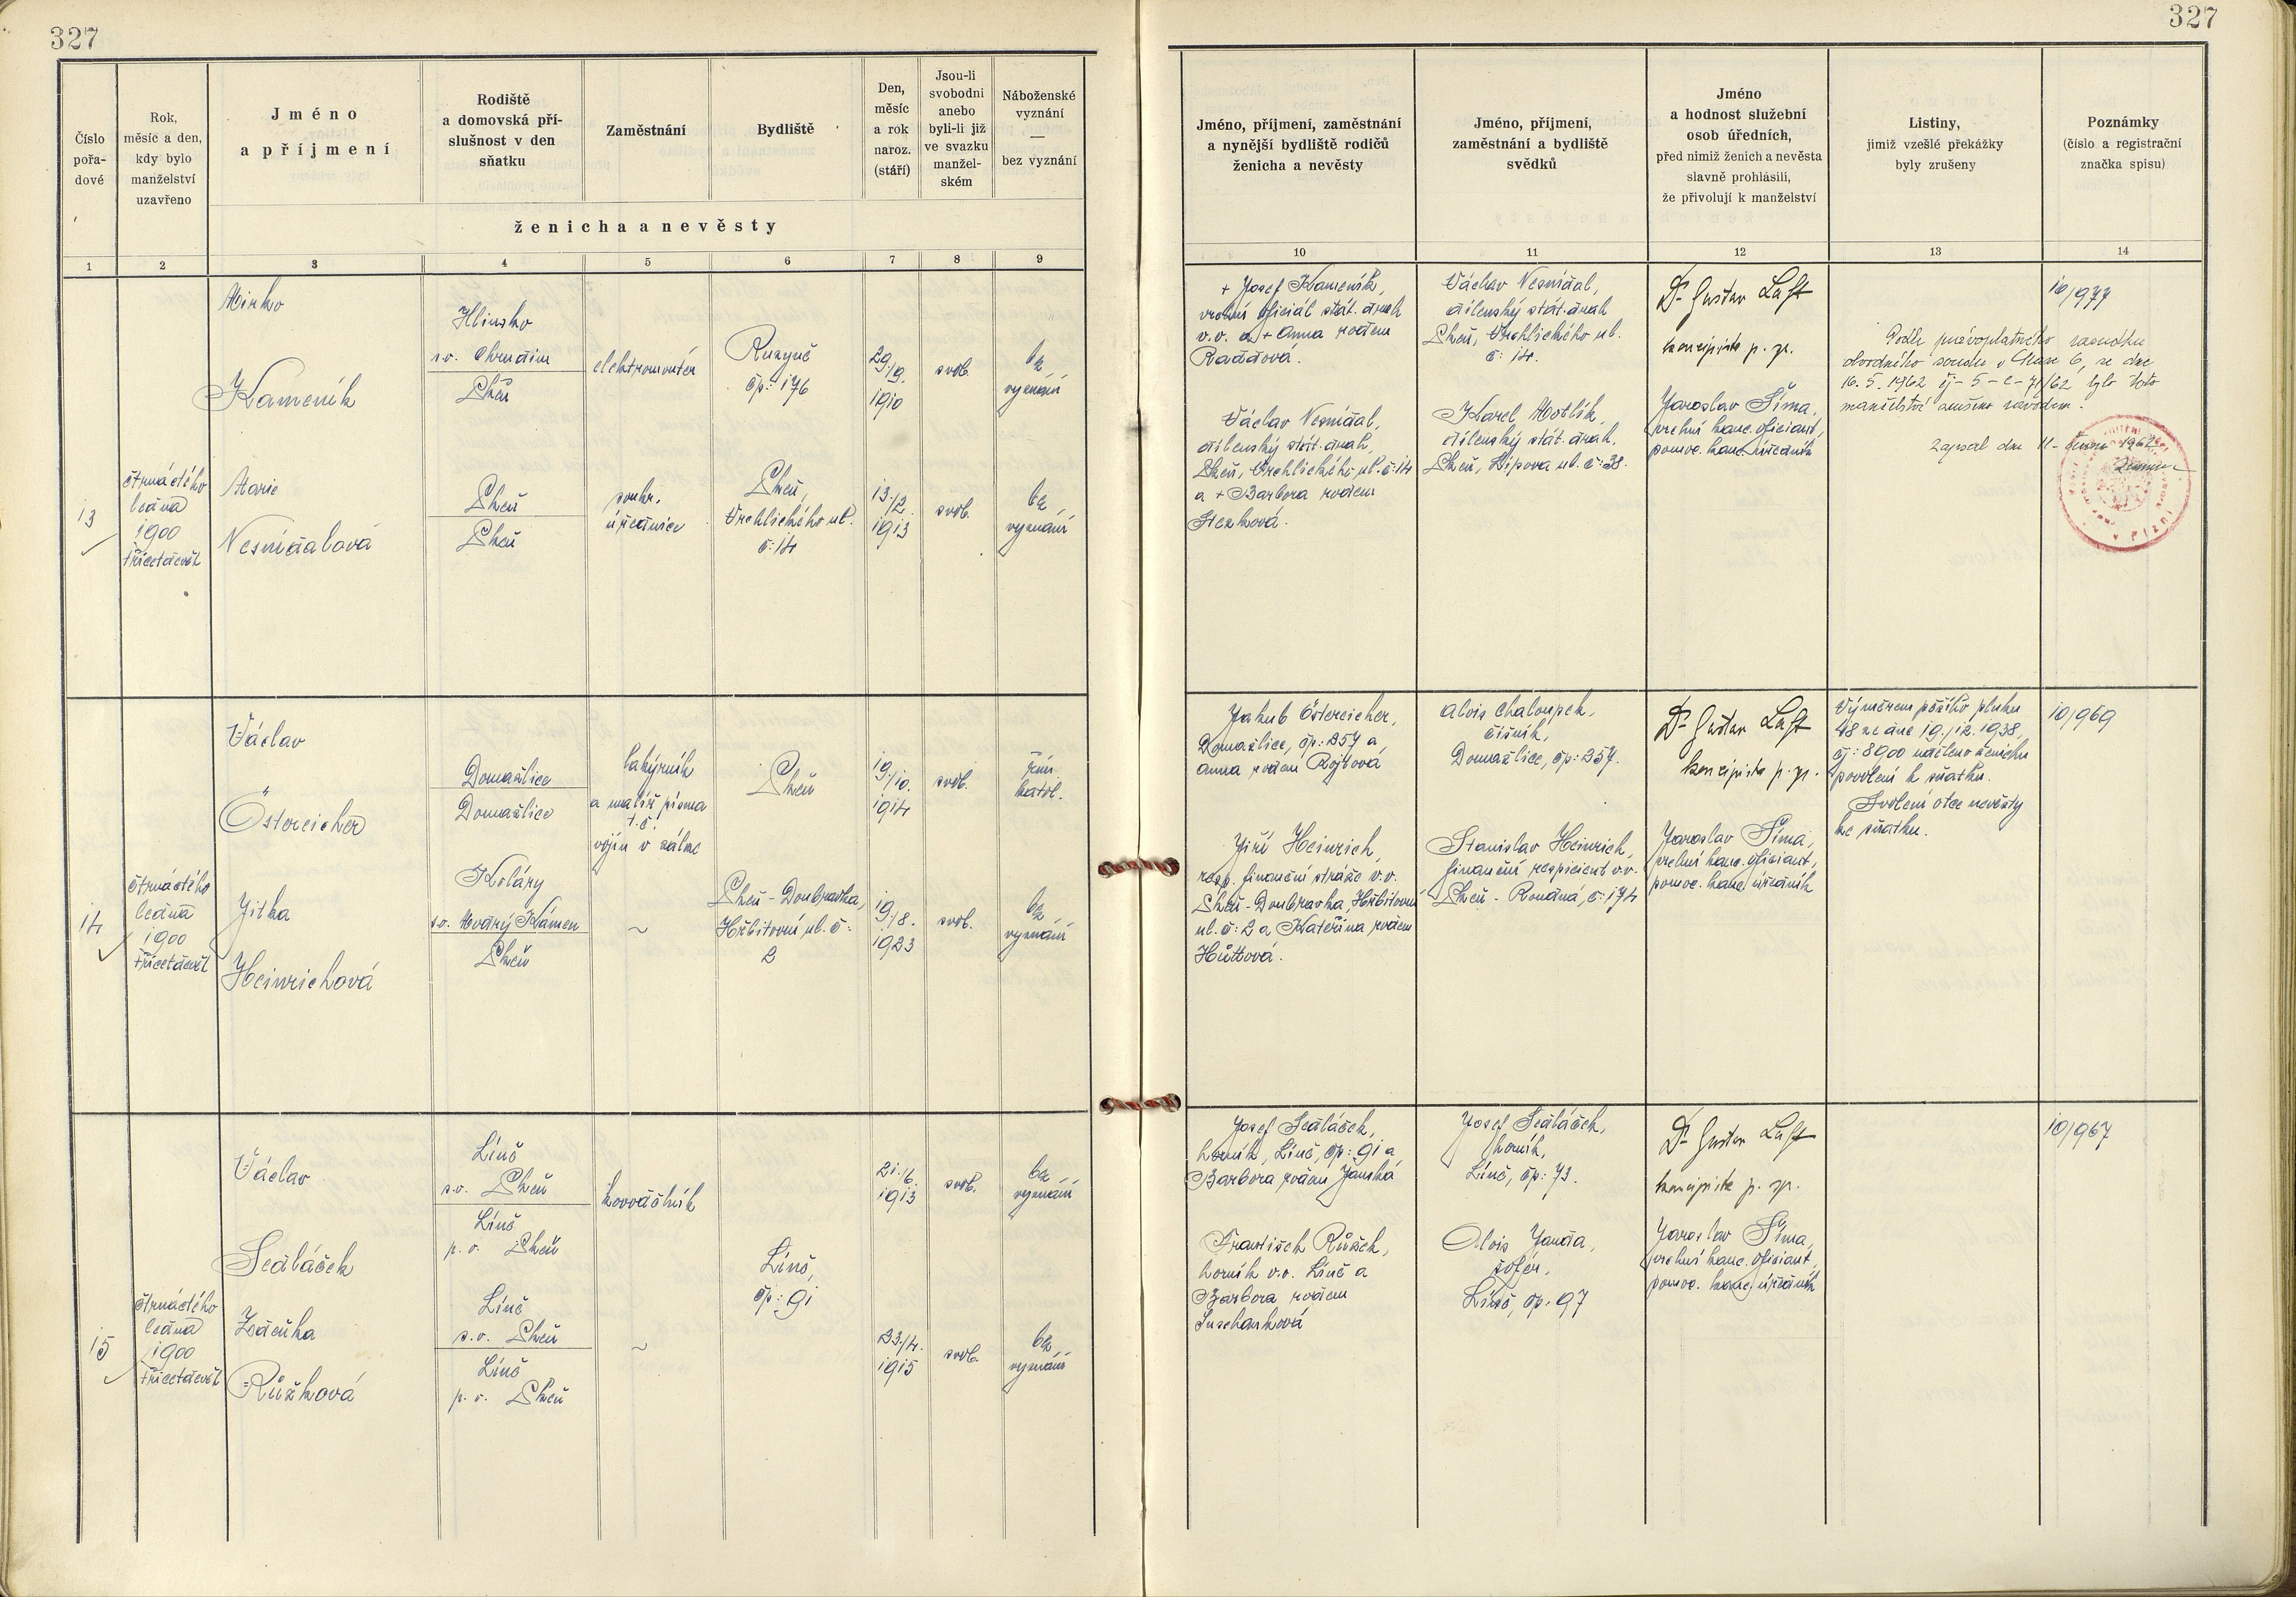 327
327
Číslo
pořa-
dové
Rok,
měsíc a den,
kdy bylo
manželství
uzavřeno
Jméno
a příjmení
Rodiště
a domovská pří-
slušnost v den
sňatku
Zaměstnání
Bydliště
Den,
měsíc
a rok
naroz.
(stáří)
Jsou-li
svobodni
anebo
byli-li již
ve svazku
manžel-
ském
Náboženské
vyznání
—
bez vyznání
ženicha a nevěsty
Jméno, příjmení, zaměstnání
a nynější bydliště rodičů
ženicha a nevěsty
Jméno, příjmení,
zaměstnání a bydliště
svědků
Jméno
a hodnost služební
osob úředních,
před nimiž ženich a nevěsta
slavně prohlásili,
že přivolují k manželství
Listiny,
jimiž vzešlé překážky
byly zrušeny
Poznámky
(číslo a registrační
značka spisu)
1 2 3 4 5 6 7 8 9
10 11 12 13 14
13
čtrnáctého
ledna
1900
třicetdevět
Mirko
Kameník
Hlinsko
s.o. Chrudim
Plzeň
elektromontér
Ruzyně
čp: 176
29./9.
1910
svob.
bez
vyznání
Marie
Nesnídalová
Plzeň
Plzeň
soukr.
úřednice
Plzeň,
Vrchlického ul.
č: 14
13./2.
1913
svob.
bez
vyznání
+ Josef Kameník,
vrchní oficiál stát. drah
v.v. a + Anna rodem
Václav Nesnídal,
dílenský stát. drah,
Plzeň, Vrchlického ul. č: 14
a + Barbora rodem
Václav Nesnídal,
dílenský stát. drah
Plzeň, Vrchlického ul.
č: 14.
Karel Motlík,
dílenský stát. drah,
Plzeň, Lípova ul. č: 38.
Dr Gustav Laft
koncipista p. zp.
Jaroslav Šíma,
vrchní kanc. oficiant,
pomoc. kanc. úředník
Podle právoplatného rozsudku
obvodního soudu v Praze 6, ze dne
16. 5. 1962 čj - 5 - C - 71/62 bylo toto
manželství zrušeno rozvodem.
Zapsal dne 11. června 1962
10/977
14
čtrnáctého
ledna
1900
třicetdevět
Václav
Östereicher
Domažlice
Domažlice
lakýrník
a malíř písma
t.č.
vojín v záloze
Plzeň
19./10.
1914
svob.
řím.
katol.
Jitka
Heinrichová
Koláry
s.o. Modrý Kámen
Plzeň
~
Plzeň - Doubravka,
Hřbitovní ul. č:
2
19./8.
1923
svob.
bez
vyznání
Jakub Östereicher,
Domažlice, čp: 257 a
Anna rodem Rojtová
Jiří Heinrich,
resp. finanční stráže v.v.
Plzeň - Doubravka, Hřbitovní
ul. č: 2 a Kateřina rodem
Hüttová.
Alois Chaloupek,
číšník,
Domažlice, čp: 257.
Stanislav Heinrich,
finanční respicient v.v.
Plzeň - Roudná, č: 174
Dr Gustav Laft
koncipista p. zp.
Jaroslav Šíma,
vrchní kanc. oficiant,
pomoc. kanc. úředník
Výměrem pěšího pluku
18 ze dne 19./12. 1938,
čj: 8900 uděleno ženichu
povolení k sňatku.
Svolení otce nevěsty
ke sňatku.
10/969
15
čtrnáctého
ledna
1900
třicetdevět
Václav
Sedláček
Líně
s.o. Plzeň
Líně
p. o. Plzeň
kovodělník
Líně,
čp: 91
21./6.
1913
svob.
bez
vyznání
Zdeňka
Růžková
Líně
s.o. Plzeň
Líně
p. o. Plzeň
~
23./4.
1915
svob.
bez
vyznání
Josef Sedláček,
horník, Líně, čp: 91 a
Barbora rodem Janská
František Růžek,
horník v.v. Líně a
Barbora rodem
Josef Sedláček,
horník,
Líně, čp: 73.
Alois Janda,
šofér,
Líně, čp: 97
Dr Gustav Laft
koncipista p. zp.
Jaroslav Šíma,
vrchní kanc. oficiant,
pomoc. kanc. úředník
10/967